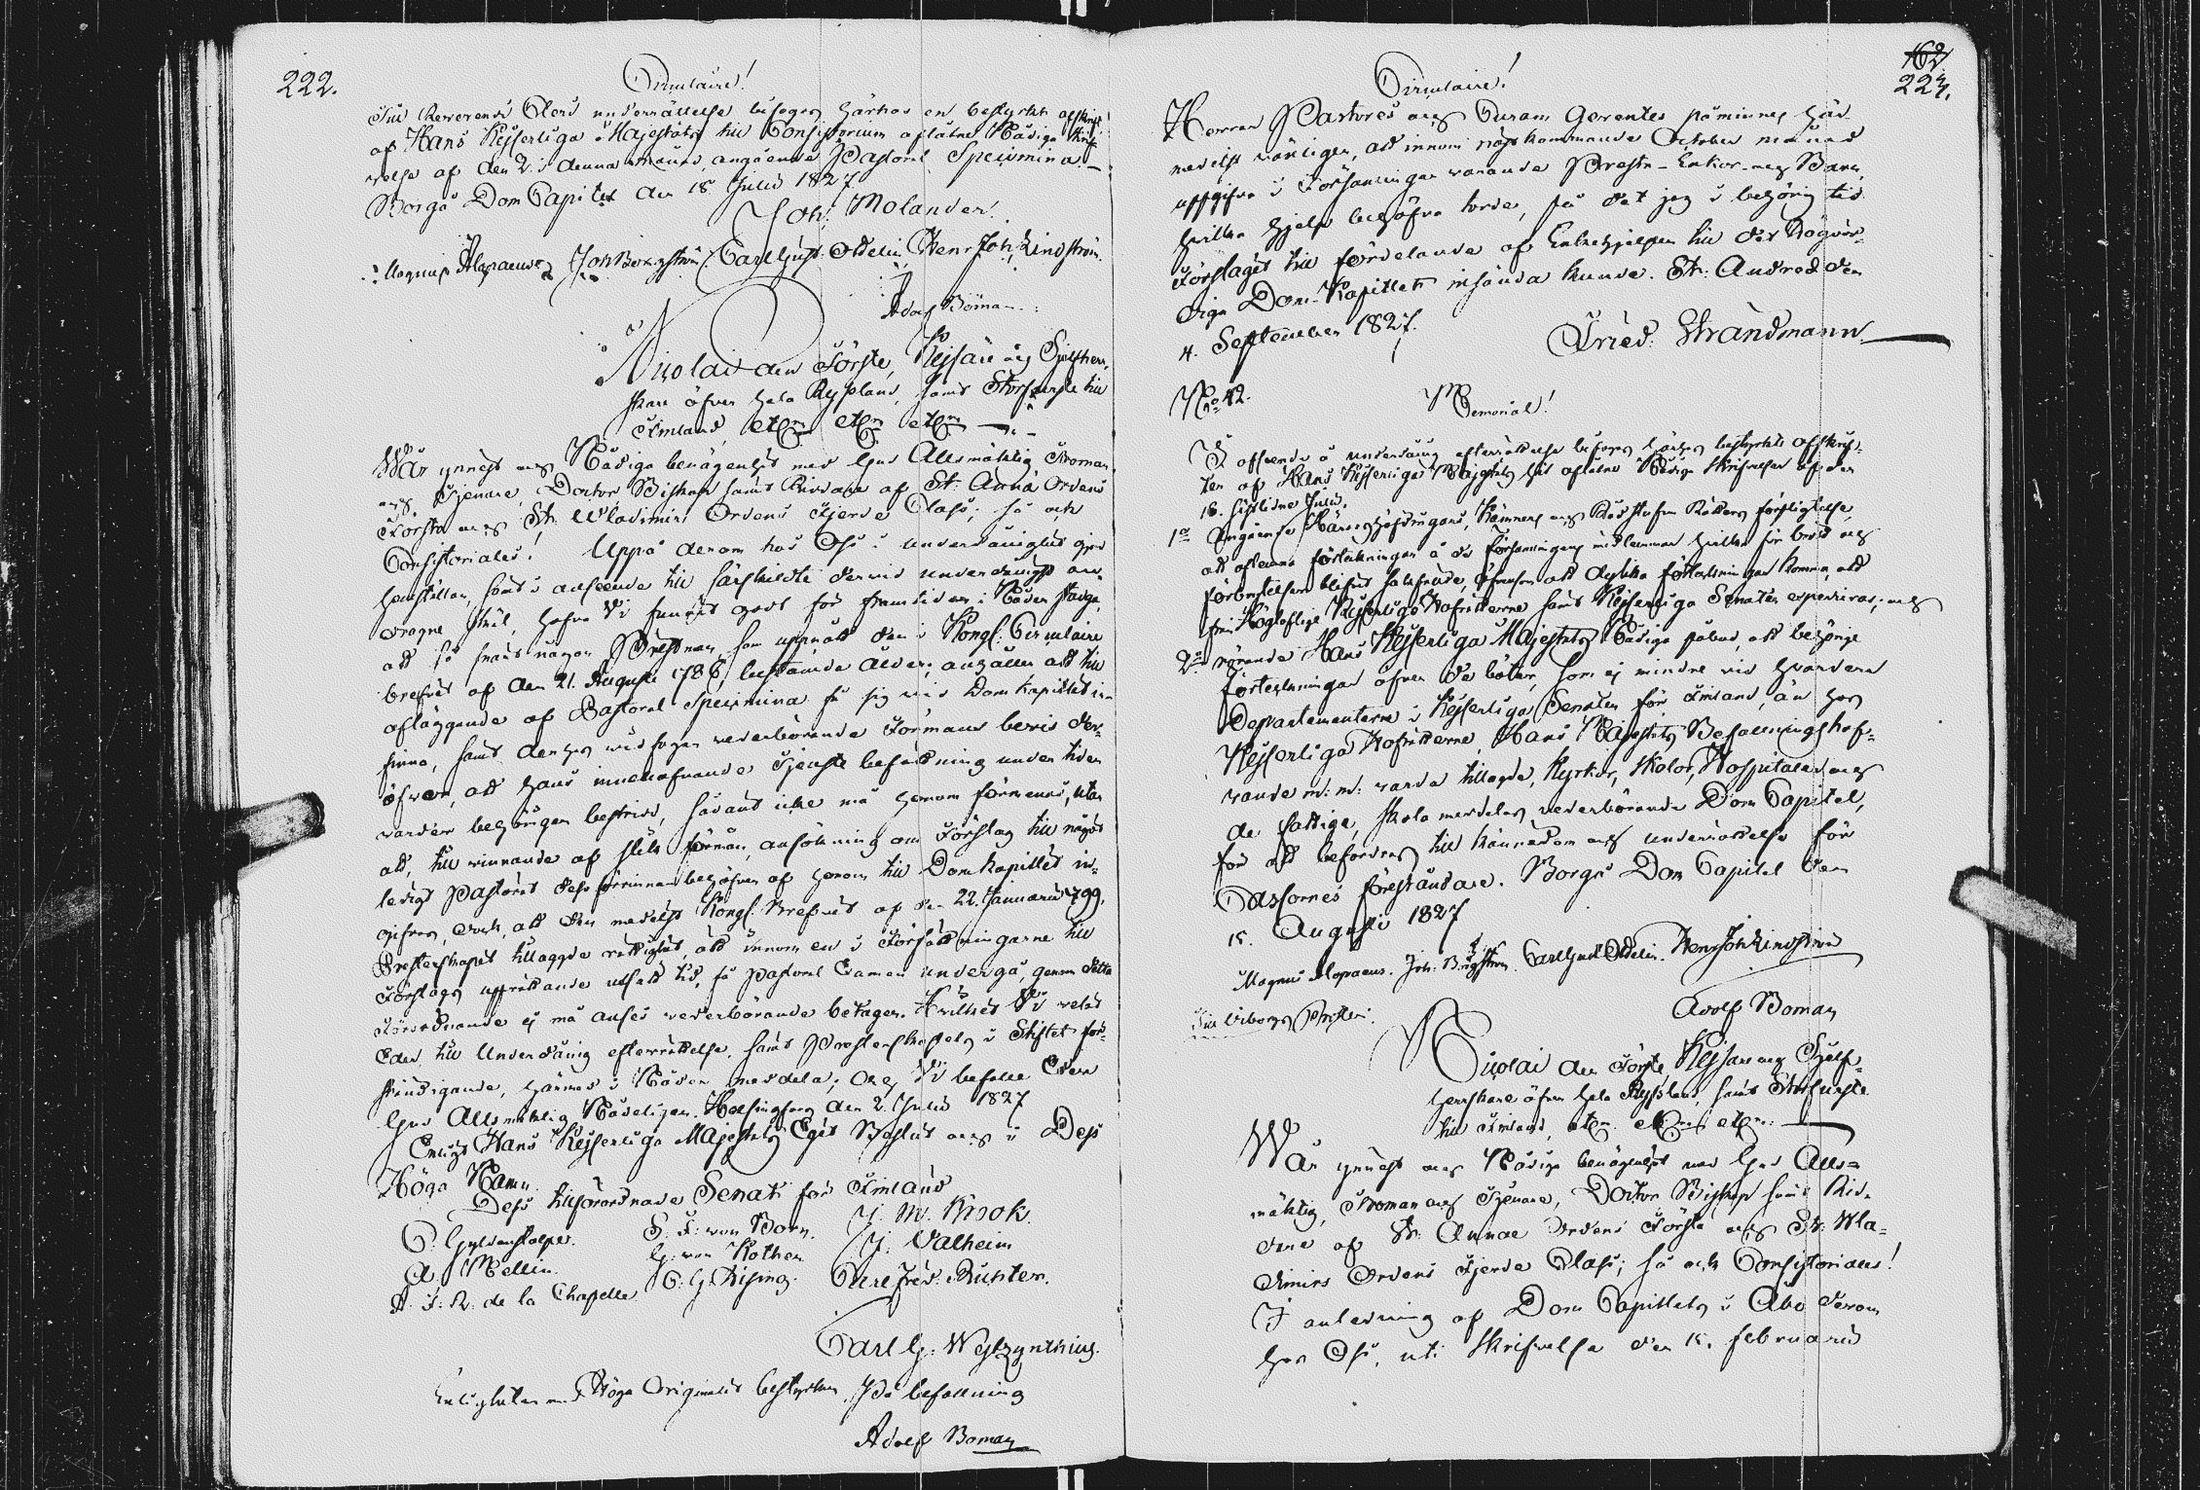 222.
Circulaire!
Till Reverendi Cleri underrättelse bifogas härhos en bestyrkt afskrift
af Hans Kejserliga Majestäts till Consistorium aflåtne Nådiga Skrif-
velse af den 2. i denna månad, angående Pastoral Specimina. —
Borgå Dom Capitel den 18 Julii 1827.
Joh: Molander.
Magnus Alopaeus Joh Borgström Carl Gust: Ottelin Henr Joh: Lindström.
Adolf Boman.
Nicolai den Förste, Kejsare och Sjelfherr-
skare öfver hela Ryssland, samt Storfurste till
Finland, etc. etc. etc.
Vår ynnest och Nådiga benägenhet med Gud Allsmäktig Troman
och Tjenare, Doctor Biskop samt Riddare af St: Anna Ordens
Första och St: Wladimirs Ordens Fjerde Class; så ock
Consistoriales! Uppå derom hos Oss i underdånighet gjord
hemställan, samt i anseende till särskildte dervid underdånigst an-
dragne skäl, hafve Vi funnit godt för framtiden i Nåder stadga,
att så snart någon Prestman, som uppnått den i Kongl: Circulaire
brefvet af den 21. Augusti 1786 bestämde ålder, anhåller att till
afläggande af Pastoral Specimina få sig vid Domkapitlet in-
finna, samt denhos vidfogar vederbörande Förmans bevis der-
öfver, att hans innehafvande Tjenste befattning under tiden
varder behörigen bestridd, sådant icke må honom förmenas, utan
att, till vinnande af slik förmån, ansökning om Förslag till något
ledigt Pastorat dessförinnan behöfver af honom till Domkapitlet in-
gifvas, dock, att den medelst Kongl. Brefvet af den 22. Januarii 1799.
Presterskapet tillaggde rättighet, att innom en i Författningarne till
Förslags upprättande utsatt tid, få Pastoral Examen undergå, genom detta
Förordnande ej må anses vederbörande betagen. Hvilket Vi velat
Eder till Underdånig efterrättelse, samt Presterskapets i Stiftet för-
ständigande, härmed i Nåder meddela; Och Vi befalle Eder
Gud Allsmäktig Nådeligen. Helsingfors den 2. Julii 1827
Enligt Hans Kejserliga Majestäts Eget Beslut och i Dess
Höga Namn.
Dess tillförordnade Senat för Finland
C. Gyldenstolpe. S. F: von Born. J. M. Krook.
A. Mellin. G: von Kothen J: Walheim
A. F: R: de la Chapelle C: G: Hising. Carl Fred: Richter.
Carl G: Westzynthius.
Enligheten med Höga Originalet bestyrker. På befallning
Adolf Boman
162
223.
Circulaire!
Herrar Pastores och Curam Gerentes påminnes här
medelst vänligen, att innom nästkommande October månad
uppgifva i Församlingar varande Prest-Enkor och Barn,
hvilka hjelp behöfva torde, på det jag i behörig tid
Förslaget till fördelande af Enkehjelpen till det Högvör-
diga Dom-Kapitlet insända kunde. St: Andreæ den
4. September 1827.
Fried: Strandmann
No 42.
Memorial!
I afseende å underdånig efterrättelse bifogas härhos bestyrkte afskrif-
ter af Hans Kejserliga Majestäts hit aflåtne Nådige Skrifvelser af den
18. sistlidne Julii,
1o Angående Häradshöfdingars, Kämners och Rådstufvu Rätters förpligtelse
att aflemna förteckningar å de församlingens medlemmar hvilka för brott och
förbrytelser blifvit sakfällde, äfvensom att dylika förteckningar komma att
från Högloflige Kejserliga Hofrätterne samt Kejserliga Senaten expedieras; och
2o rörande Hans Kejserliga Majestäts Nådiga påbud, att behörige
förteckningar öfver de böter, som ej mindre vid hvardera
Departementerne i Kejserliga Senaten för Finland, än hos
Kejserliga Hofrätterne, Hans Majestäts Befallningshaf-
vande m: m: varda tillagde, Kyrkor, Skolor, Hospitaler och
de fattige, skola meddelas vederbörande Dom Capitel,
för att befordras till kännedom och underrättelse för
Cassornes föreståndare. Borgå Dom Capitel den
15. Augusti 1827
Magnus Alopaeus. Joh: Borgström. Carl Gust Ottelin. Henr Joh Lindström
Adolf Boman
Till Wiborgs Prosteri.
Nicolai den Förste Kejsare och Sjelf-
herrskare öfver hela Ryssland, samt Storfurste
till Finland, etc. etc. etc.
Vår ynnest och Nådiga benägenhet med Gud Alls-
mäktig, Troman och Tjenare, Doctor Biskop samt Rid-
dare af St: Annae Ordens Första och St: Wla-
dimirs Ordens Fjerde Class; så ock Consistoriales!
I anledning af Dom Capitlets i Åbo derom
hos Oss, uti Skrifvelse den 15. Februarii